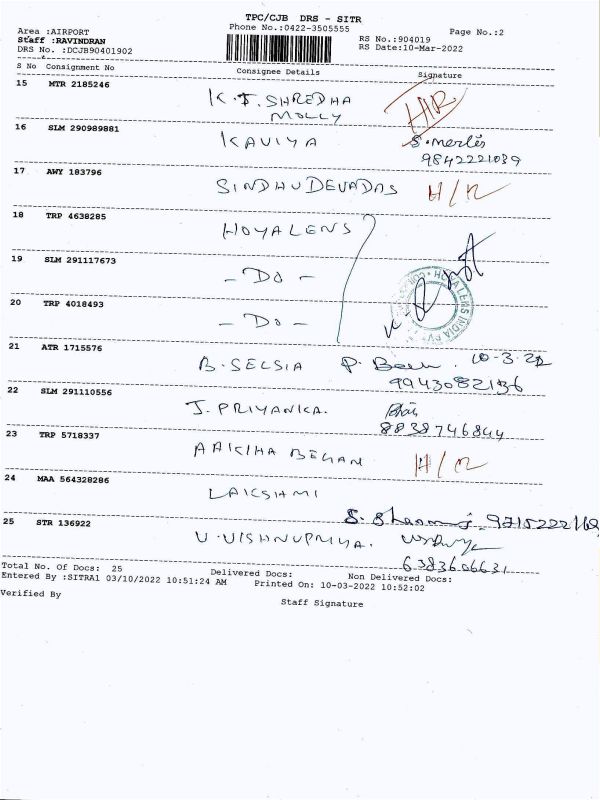 TPC/CJB DRS - SITR
Phone No.:0422-3505555
Page No.:2
Area :AIRPORT
Staff :RAVINDRAN
DRS No. :DCJB90401902
RS No.:904019
RS Date:10-Mar-2022
S No Consignment No Consignee Details Signature
15 MTR 2185246 K.J. SHREDHA MOLLY H/R
16 SLM 290989881 KAVIYA
9842221039
17 AWY 183796 SINDHU DEVADAS H/R
18 TRP 4638285 HOYALENS
19 SLM 291117673 - DO -
20 TRP 4018493 - DO -
HOYA LENS INDIA PVT
21 ATR 1715576 B. SELSIA 10-3-22
9943082136
22 SLM 291110556 J. PRIYANKA.
8838746844
23 TRP 5718337 H/R
24 MAA 564328286 LAKSHMI
25 STR 136922 V. VISHNUPRIYA.
6383606631
Total No. Of Docs: 25 Delivered Docs: Non Delivered Docs:
Entered By :SITRA1 03/10/2022 10:51:24 AM Printed On: 10-03-2022 10:52:02
Verified By Staff Signature